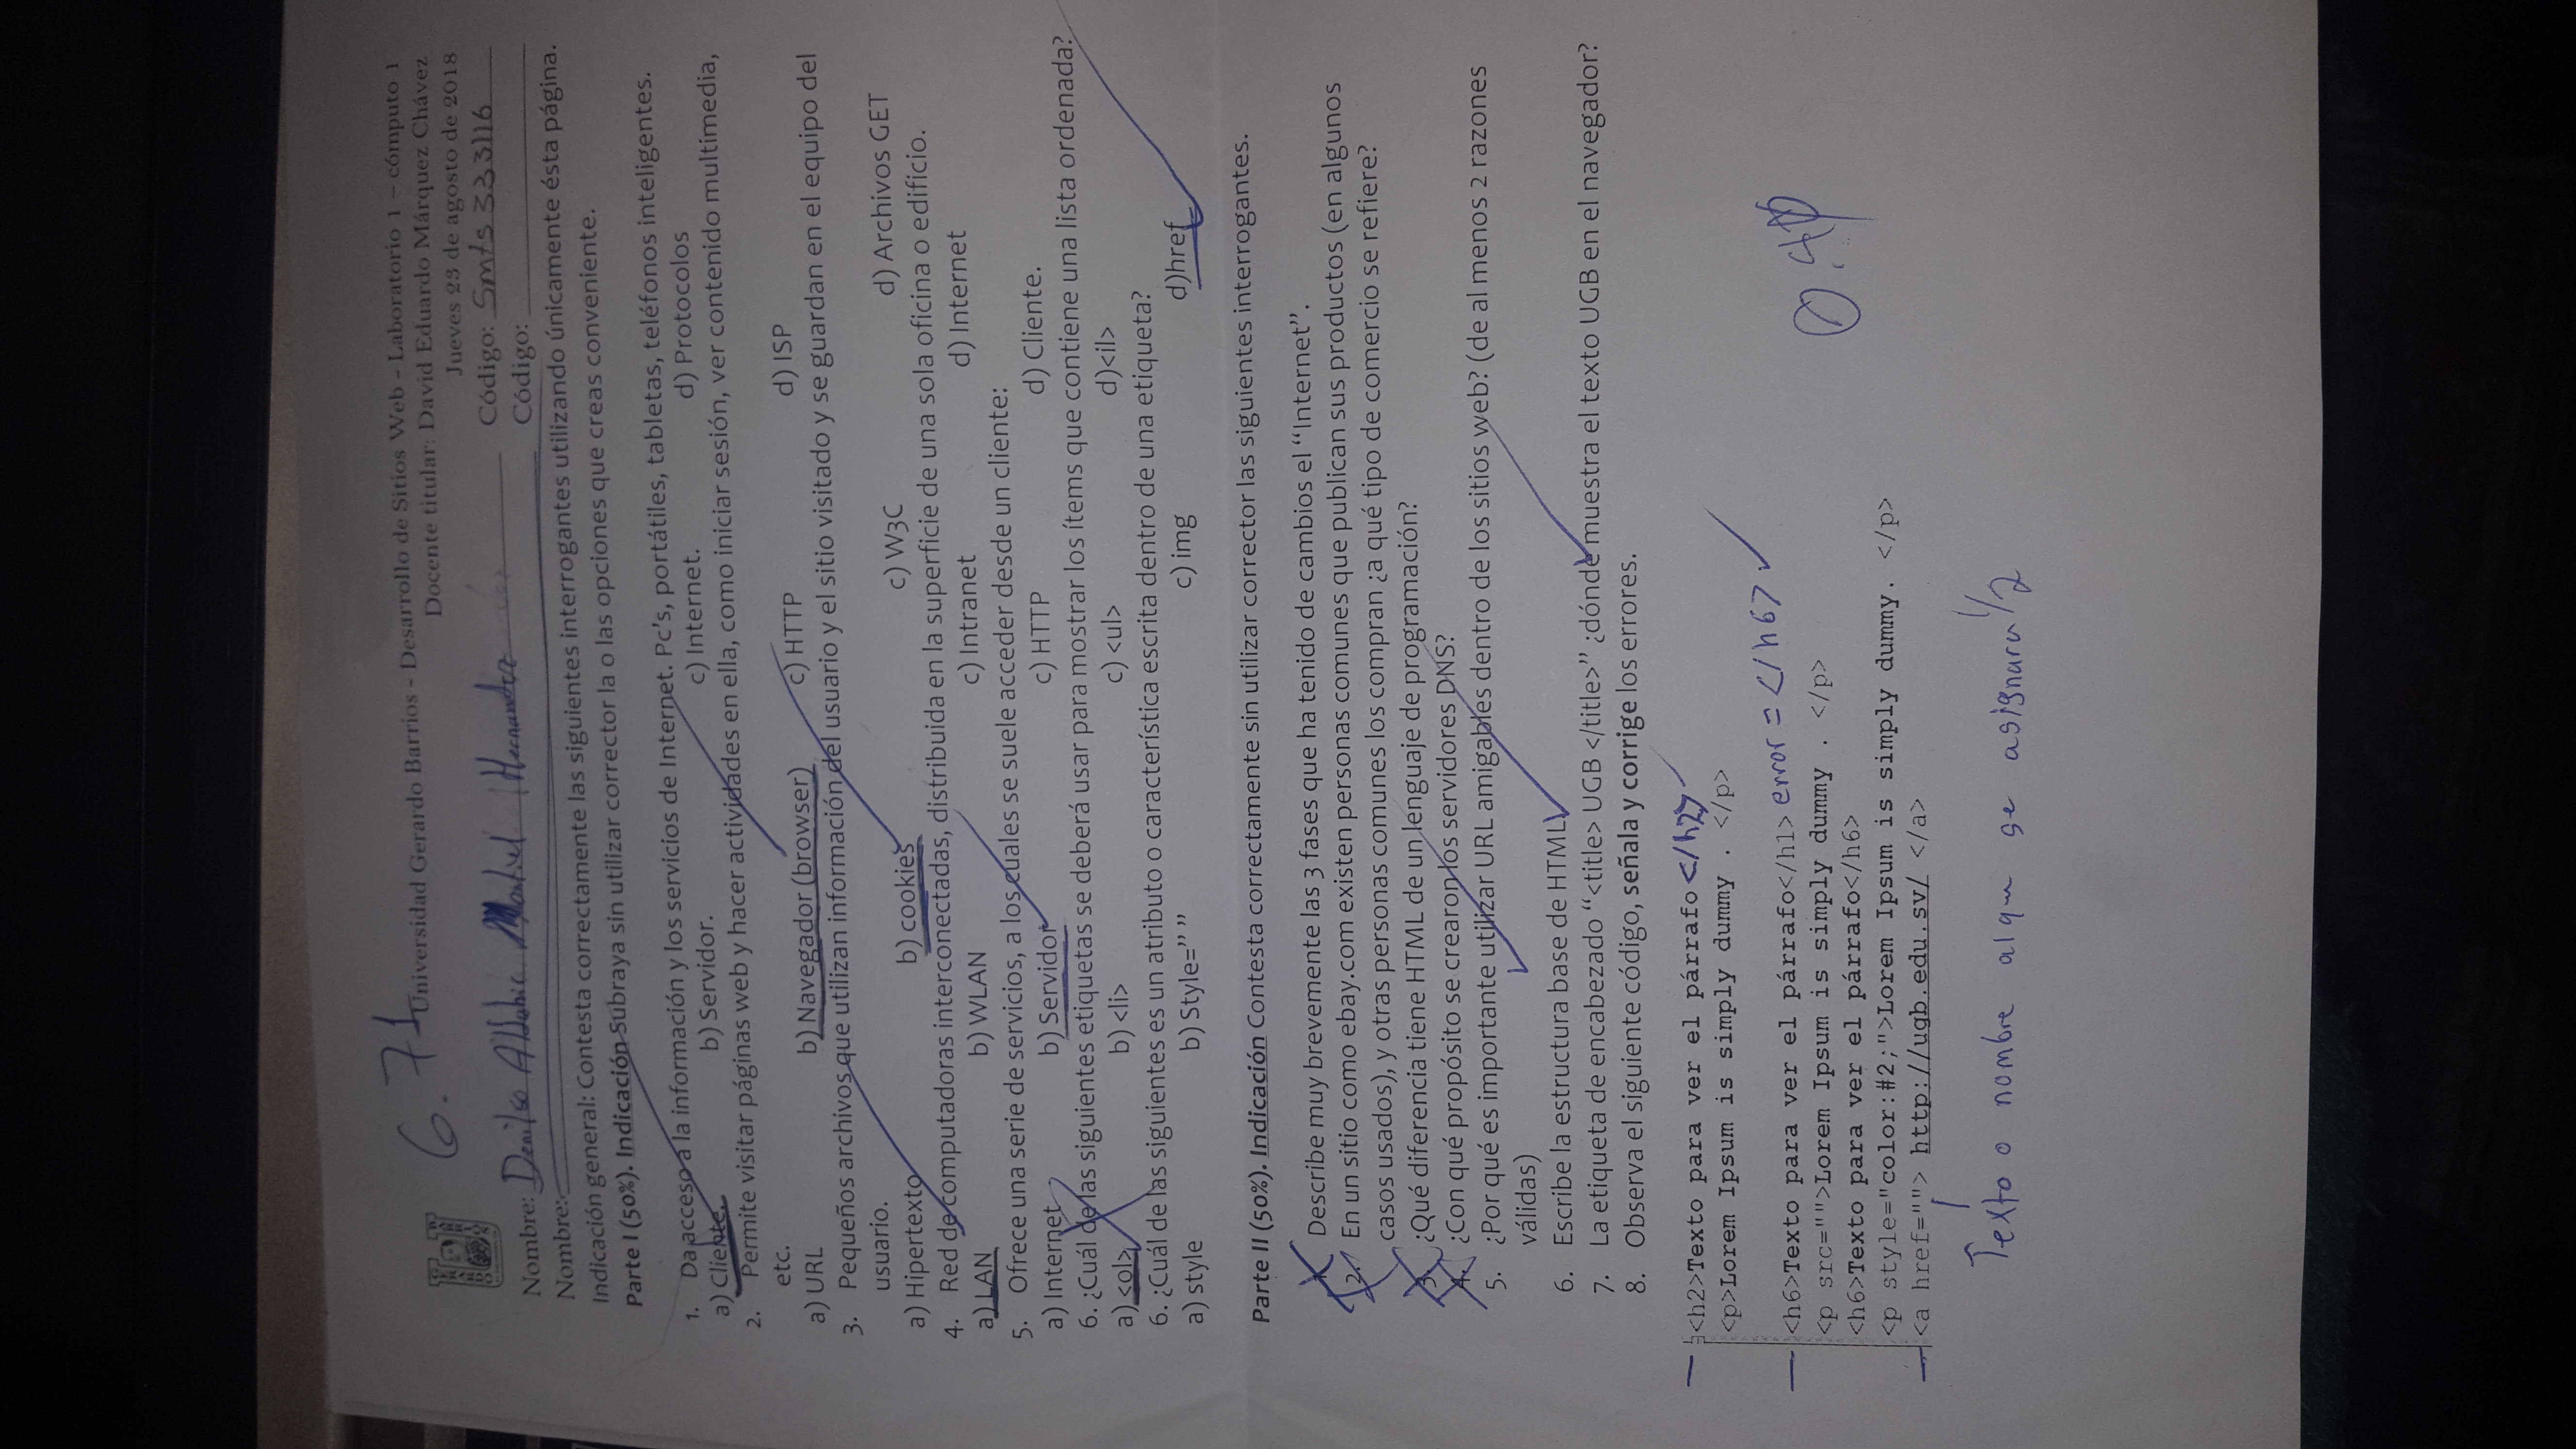 6.71
Universidad Gerardo Barrios - Desarrollo de Sitios Web - Laboratorio 1 – cómputo 1
Docente titular: David Eduardo Márquez Chávez
Jueves 23 de agosto de 2018
Código: Smts333116
Nombre: Hernandez
Código:
Nombre:
Indicación general: Contesta correctamente las siguientes interrogantes utilizando únicamente ésta página.
Parte I (50%). Indicación Subraya sin utilizar corrector la o las opciones que creas conveniente.
1. Da acceso a la información y los servicios de Internet. Pc's, portátiles, tabletas, teléfonos inteligentes.
a) Cliente. b) Servidor. c) Internet. d) Protocolos
2. Permite visitar páginas web y hacer actividades en ella, como iniciar sesión, ver contenido multimedia,
etc.
a) URL b) Navegador (browser) c) HTTP d) ISP
3. Pequeños archivos que utilizan información del usuario y el sitio visitado y se guardan en el equipo del
usuario.
a) Hipertexto b) cookies c) W3C d) Archivos GET
4. Red de computadoras interconectadas, distribuida en la superficie de una sola oficina o edificio.
a) LAN b) WLAN c) Intranet d) Internet
5. Ofrece una serie de servicios, a los cuales se suele acceder desde un cliente:
a) Internet b) Servidor c) HTTP d) Cliente.
6. ¿Cuál de las siguientes etiquetas se deberá usar para mostrar los ítems que contiene una lista ordenada?
a) <ol> b) <li> c) <ul> d)<il>
6. ¿Cuál de las siguientes es un atributo o característica escrita dentro de una etiqueta?
a) style b) Style=” ” c) img d)href
Parte II (50%). Indicación Contesta correctamente sin utilizar corrector las siguientes interrogantes.
1. Describe muy brevemente las 3 fases que ha tenido de cambios el “Internet”.
2. En un sitio como ebay.com existen personas comunes que publican sus productos (en algunos
casos usados), y otras personas comunes los compran ¿a qué tipo de comercio se refiere?
3. ¿Qué diferencia tiene HTML de un lenguaje de programación?
4. ¿Con qué propósito se crearon los servidores DNS?
5. ¿Por qué es importante utilizar URL amigables dentro de los sitios web? (de al menos 2 razones
válidas)
6. Escribe la estructura base de HTML
7. La etiqueta de encabezado “<title> UGB </title>” ¿dónde muestra el texto UGB en el navegador?
8. Observa el siguiente código, señala y corrige los errores.
<h2>Texto para ver el párrafo </h2>
<p>Lorem Ipsum is simply dummy . </p>
<h6>Texto para ver el párrafo</h1> error = </h6>
<p src="">Lorem Ipsum is simply dummy . </p>
<h6>Texto para ver el párrafo</h6>
<p style="color:#2;">Lorem Ipsum is simply dummy. </p>
<a href=""> http://ugb.edu.sv/ </a>
Texto o nombre alqu se asignara 1/2